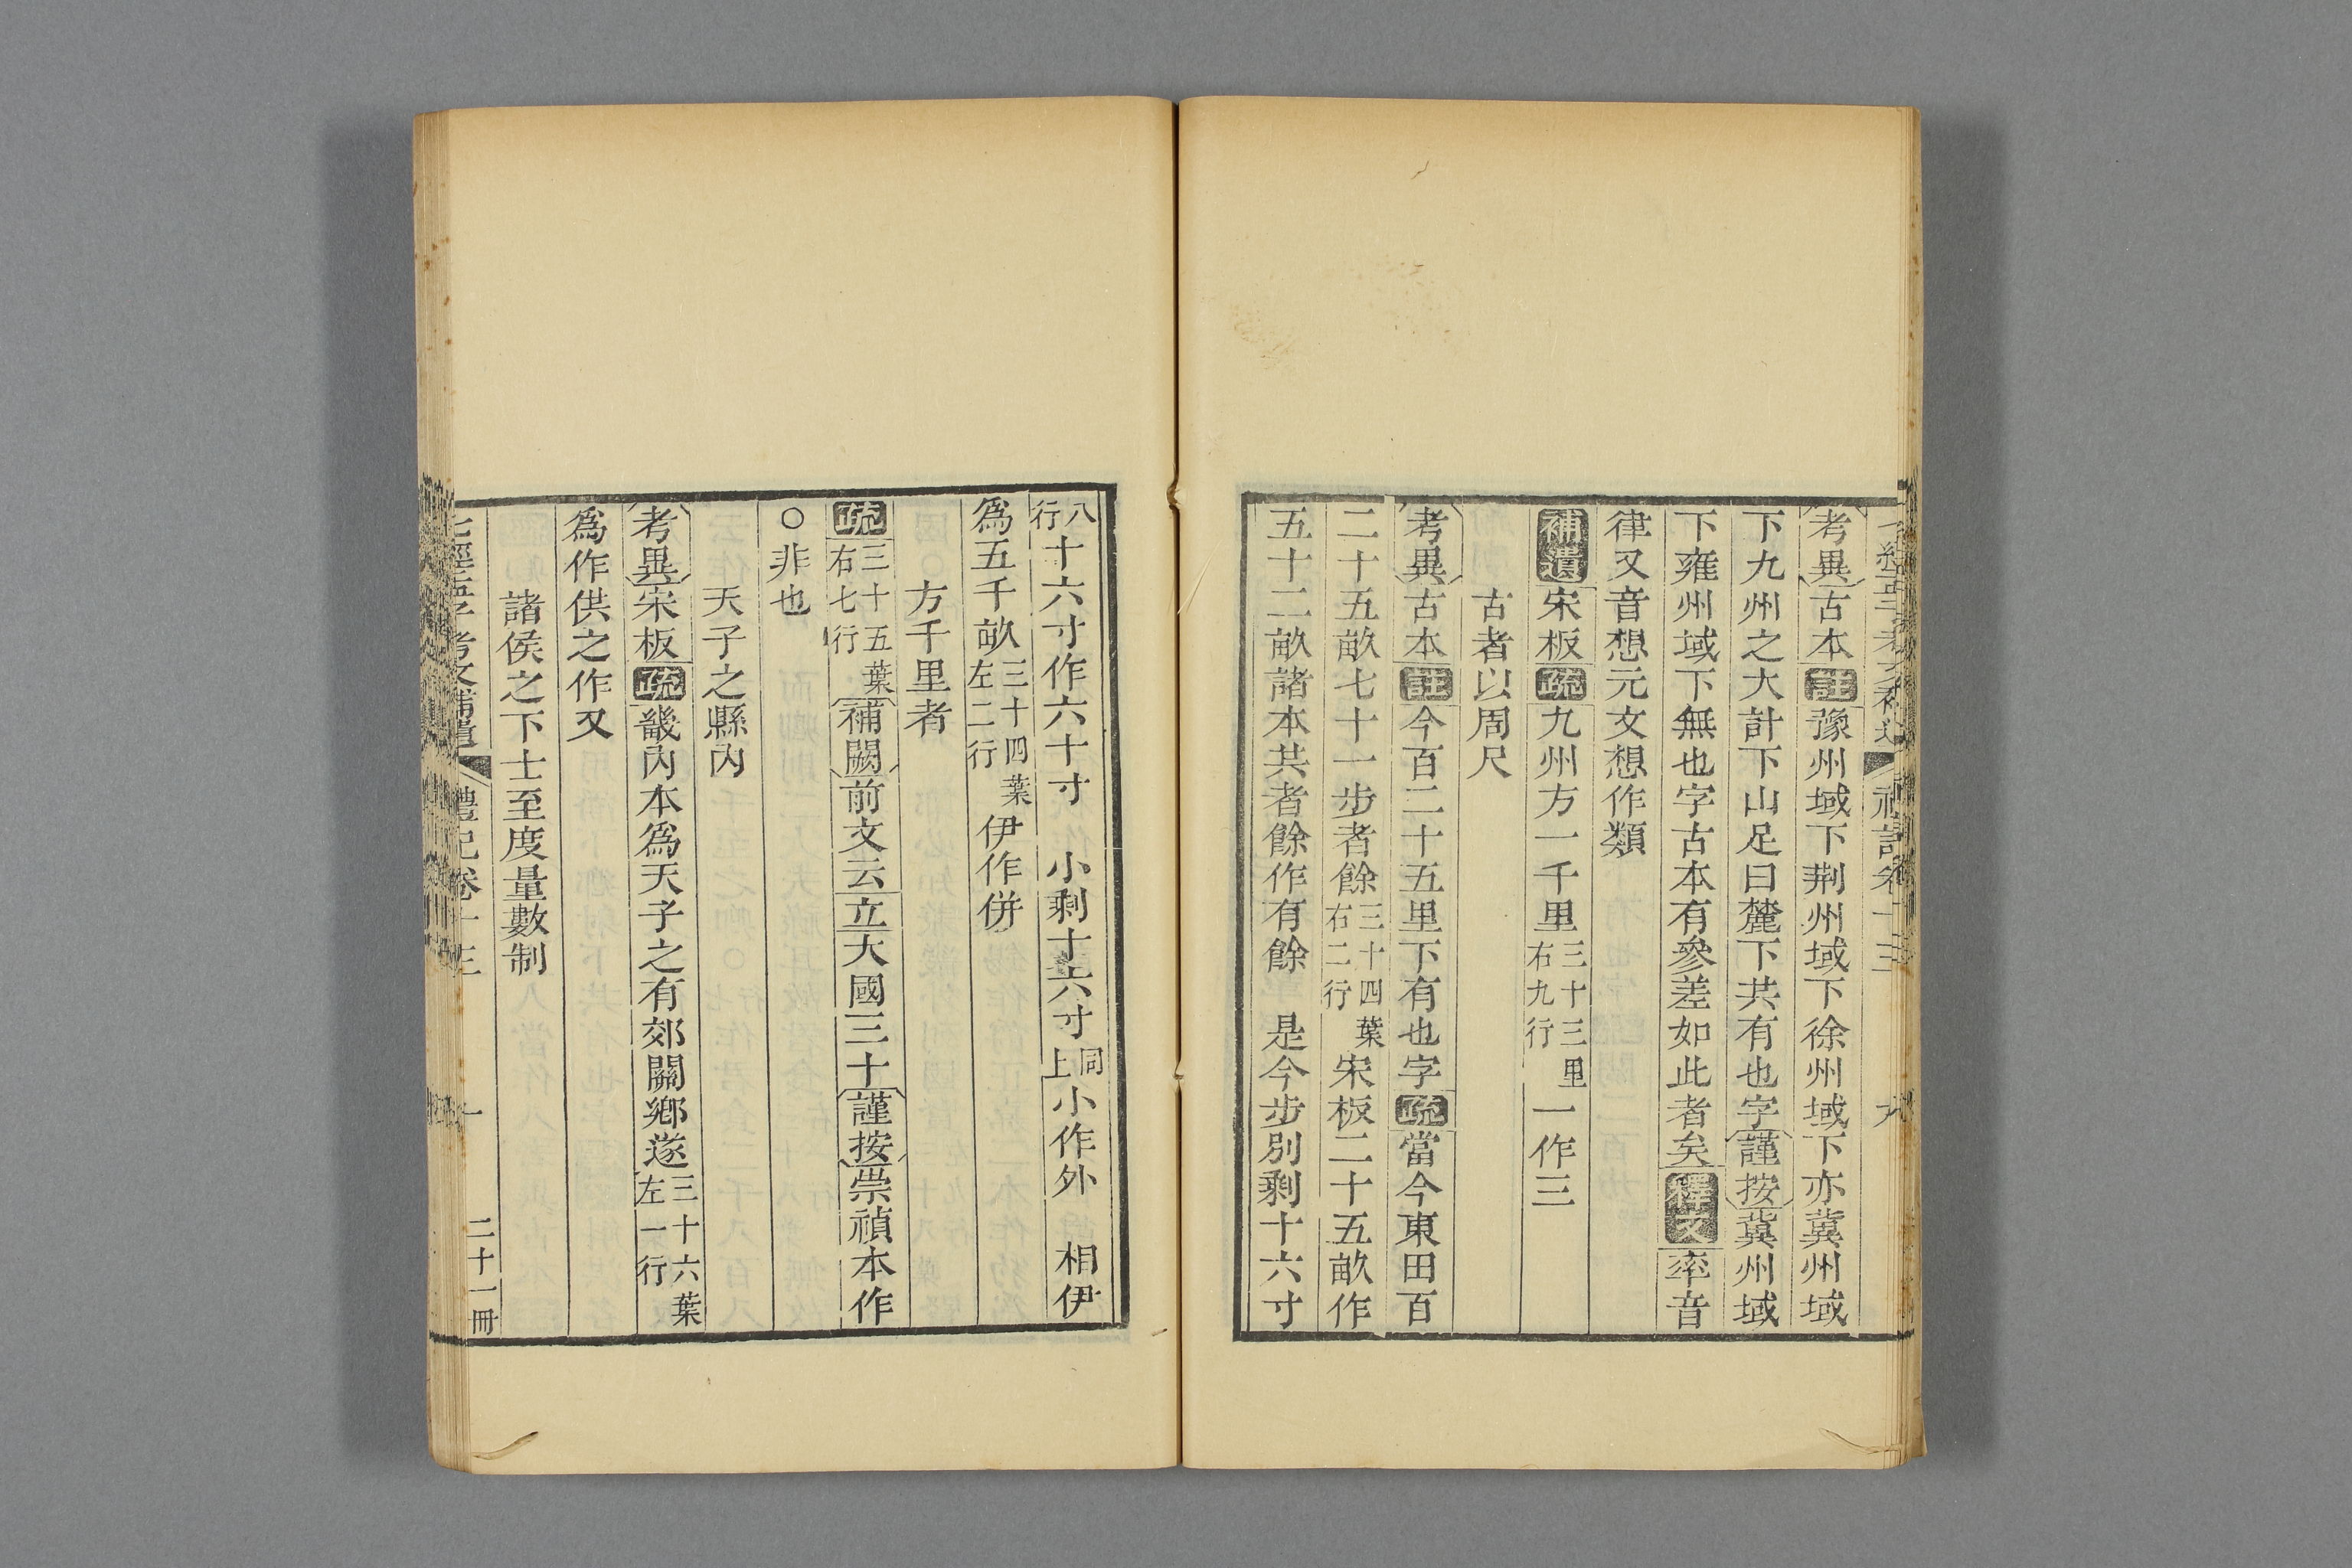 考異古本註豫州域下荆州域下徐州域下亦冀州域
下九州之大計下山足曰麓下共有也字謹按冀州域
下雍州域下無也字古本有參差如此者矣釋文率音
律又音想元文想作類
補遺宋板疏九州方一千里三十三里右九行一作三
古者以周尺
考異古本註今百二十五里下有也字疏當今東田百
二十五畝七十一步者餘三十四葉右二行宋板二十五畝作
五十二畝諸本共者餘作有餘 是今步別剩十六寸
八行十六寸作六十寸 小剩十六寸同上小作外 相伊
爲五千畝三十四葉左二行伊作併
方千里者
疏三十五葉右七行補闕前文云立大國三十謹按崇禎本作
○非也
天子之縣內
考異宋板疏畿內本爲天子之有郊關鄉遂三十六葉左一行
爲作供之作又
諸侯之下士至度量數制
七經孟子考文補遺 禮記卷十三 二十一冊